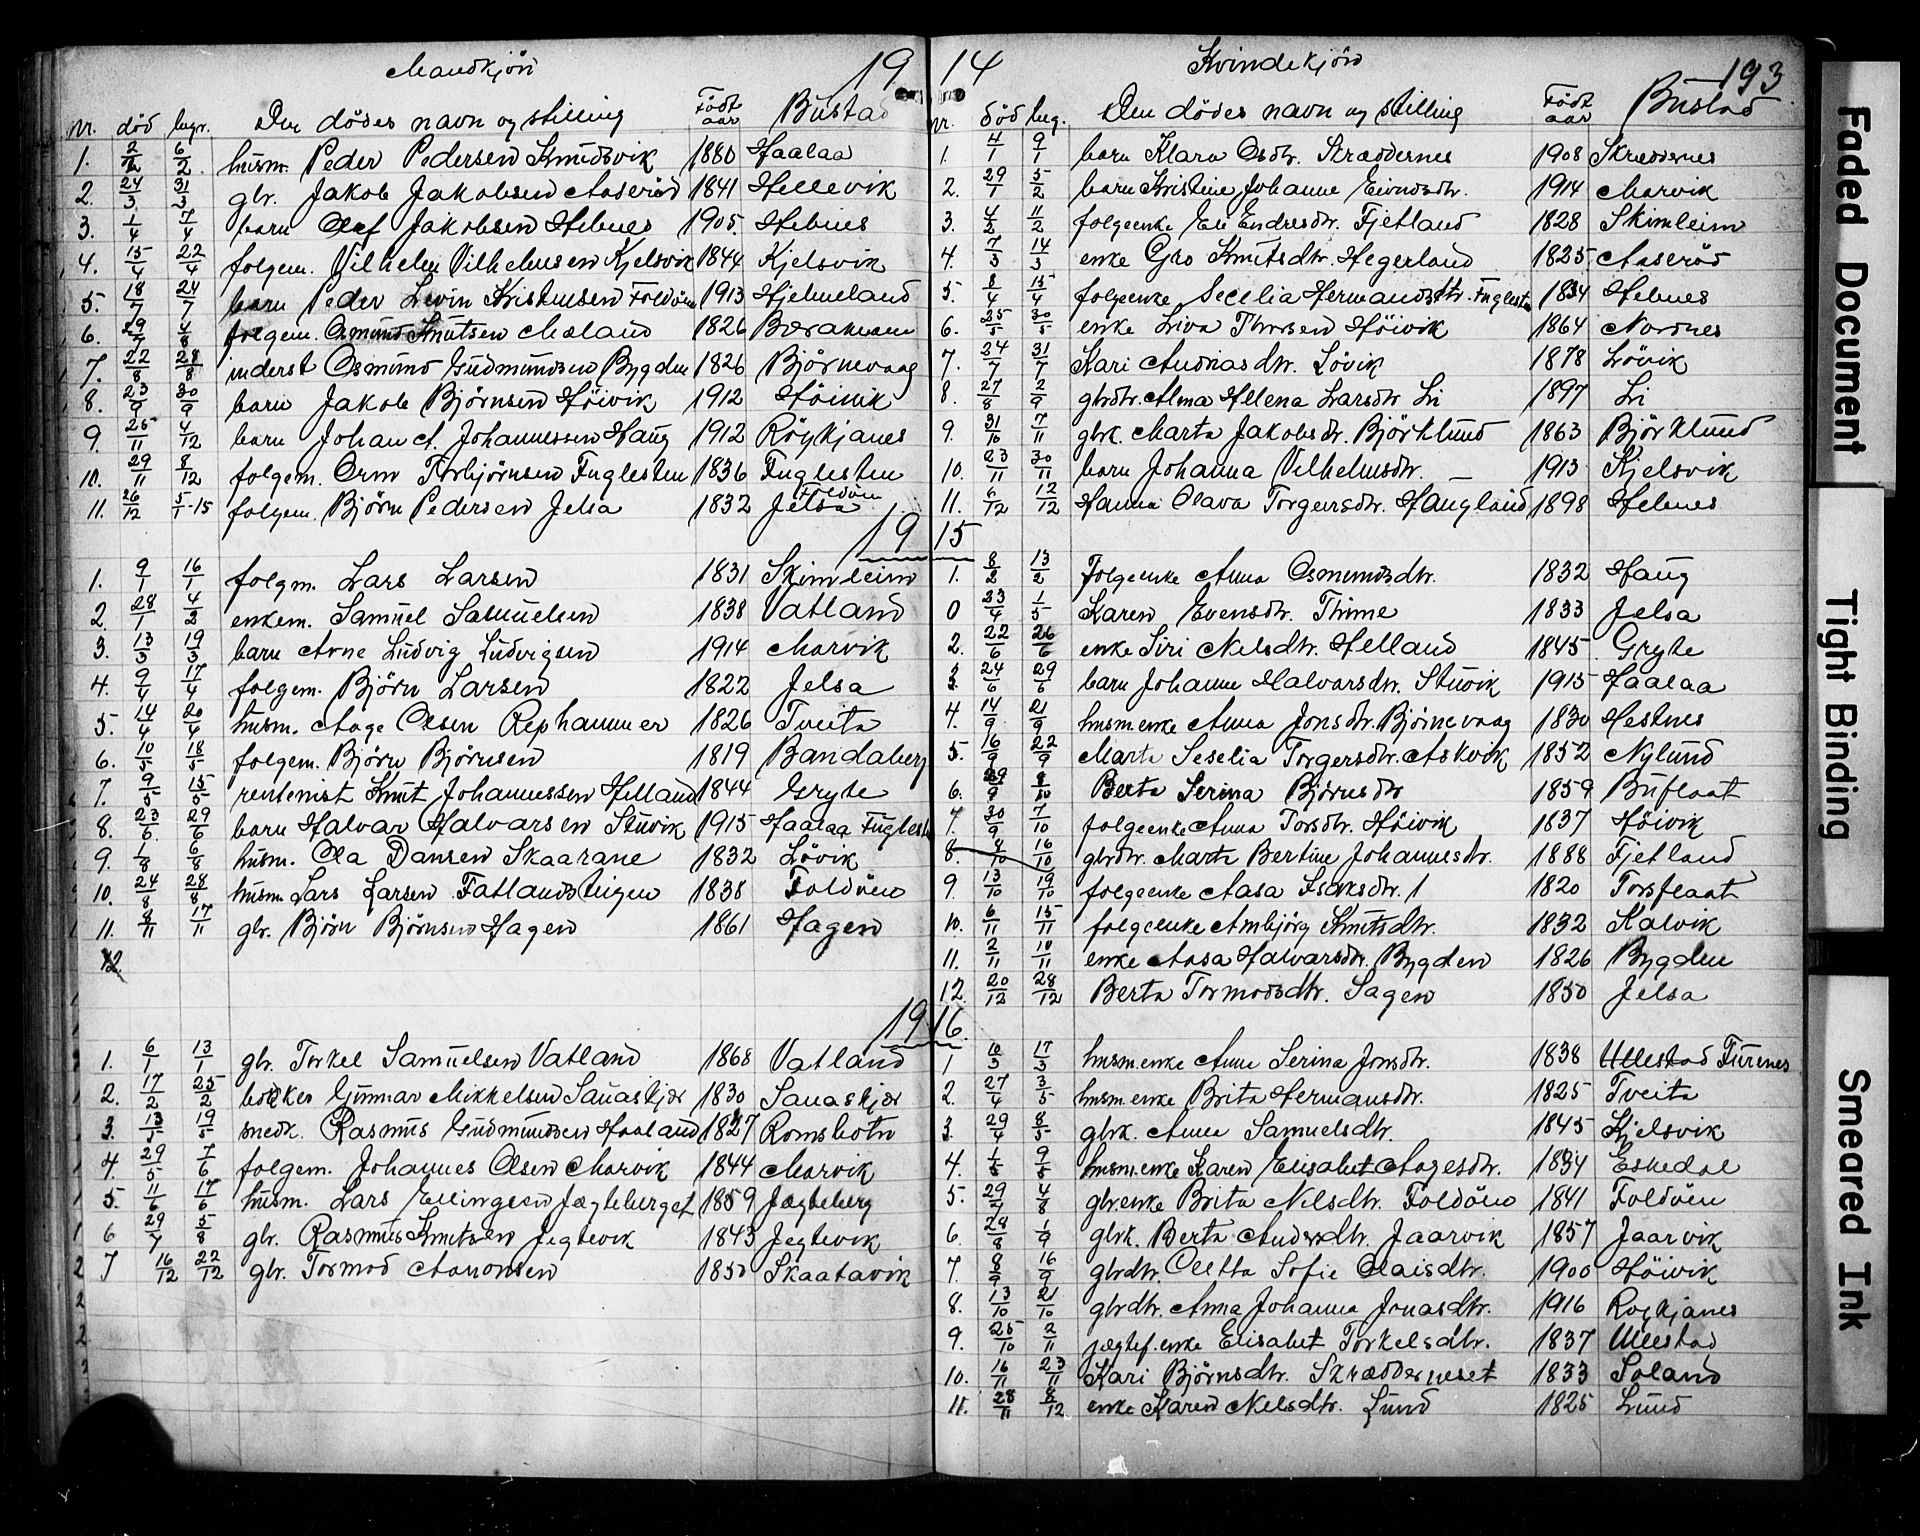 Mandkjön 19
nr. död begr. Den dödes navn og stilling Födt aar Bustad
1. 2/2 6/2 husm. Peder Pedersen Knudsvik 1880 Haalaa
2. 24/3 31/3 gbr. Jakob Jakobsen Aaseröd 1841 Hellevik
3. 1/4 7/4 barn Olaf Jakobsen Hebnes 1905 Hebnes
4. 15/4 22/4 folgem. Vilhelm Vilhelmsen Kjelsvik 1844 Kjelsvik
5. 18/7 24/7 barn Peder Levin Kristensen Foldöen 1913 Hjelmeland
6. 29/7 4/8 folgem. Osmund Knutsen Mæland 1826
7. 22/8 28/8 inderst Osmund Gudmundsen Bygden 1826 Björnevaag
8. 23/9 30/9 barn Jakob Björnsen Höivik 1912 Höivik
9. 25/11 4/12 barn Johan A. Johannessen Haug 1912 Röykjanes
10. 29/11 8/12 folgem. Orm Torbjörnsen Fuglesten 1836 Fuglesten
11. 26/12 5/1-15 folgem. Björn Pedersen Jelsa 1832 Jelsa Foldöen
19
1. 9/1 16/1 folgm. Lars Larsen 1831 Skimleim
2. 28/1 4/2 enkem. Samuel Samuelsen 1838 Vatland
3. 13/3 19/3 barn Arne Ludvig Ludvigsen 1914 Marvik
4. 9/4 17/4 folgem. Björn Larsen 1822 Jelsa
5. 14/4 20/4 husm. Aage Olsen Rephammer 1826 Tveita
6. 10/5 18/5 folgem. Björn Björnsen 1819 Bandaberg
7. 9/5 15/5 rentenist Knut Johannessen Helland 1844 Gryte
8. 23/6 29/6 barn Halvar Halvarsen Stuvik 1915 Haalaa Fuglest
9. 1/8 6/8 husm. Ola Dansen Skaarane 1832 Lövik
10. 24/8 28/8 husm. Lars Larsen Fatlandsteigen 1838 Foldöen
11. 8/11 17/11 gbr. Björn Björnsen Hagen 1861 Hagen
12.
19
1. 6/1 13/1 gbr. Torkel Samuelsen Vatland 1868 Vatland
2. 17/2 25/2 böcker Gunnar Mikkelsen Sanaskjær 1830 Sanaskjær
3. 13/5 19/5 snedk. Rasmus Gudmundsen Haaland 1827 Romsbotn
4. 29/5 7/6 folgem. Johannes Olsen Marvik 1844 Marvik
5. 11/6 17/6 husm. Lars Ellingsen Jægteberget 1859 Jægteberg
6 29/7 5/8 gbr. Rasmus Knutsen Jegtevik 1843 Jegtevik
7 16/12 22/12 gbr. Tormod Aanonsen 1850 Skaatavik
14 Kvindekjön 193
nr. död beg. Den dödes navn og stilling Födt aar Bustad
1. 4/1 9/1 barn Klara Osdtr. Skræddernes 1908 Skreddernes
2. 29/1 5/2 barn Kristine Johanne Eivindsdtr. 1914 Marvik
3. 4/2 11/2 folgeenke Eli Endresdtr. Fjetland 1828 Skimleim
4. 7/3 14/3 enke Gro Knutsdtr. Hegerland 1825 Aaseröd
5. 8/4 15/4 folgeenke Secelia Hermandsdtr. Fuglest 1834 Hebnes
6. 25/5 30/5 enke Liva Thorsen Höivik 1864 Nordnes
7. 24/7 31/7 Kari Andriasdtr. Lövik 1878 Lövik
8. 27/8 2/9 gbrdtr. Alma Helena Larsdtr Li 1897 Li
9. 31/10 7/11 gbrk. Marta Jakobsdr. Björklund 1863 Björklund
10. 23/11 30/11 barn Johanna Vilhelmsdtr. 1913 Kjelsvik
11. 6/12 12/12 Hanna Olava Torgersdtr. Haugland 1898 Hebnes
15
1. 8/2 13/2 Folgeenke Anna Osmundsdtr. 1832 Haug
0 23/4 1/5 Karen Evensdtr. Thime 1833 Jelsa
2. 22/6 26/6 enke Siri Nelsdtr. Helland 1845 Gryte
3. 24/6 29/6 barn Johanne Halvarsdtr. Stuvik 1915 Haalaa
4. 14/9 21/9 husm.enke Anna Jonsdtr. Björnevaag 1830 Hestnes
5. 16/9 22/9 Marta Seselia Torgersdtr. Askvik 1852 Nylund
6. 29/9 8/10 Berta Serina Björnsdtr 1859 Buflaat
7. 30/9 7/10 folgeenke Anna Torsdtr. Höivik 1837 Höivik
8. 9/10 16/10 gbrdtr. Marta Bertine Johannesdtr. 1888 Fjetland
9. 13/10 19/10 folgeenke Aasa Isaksdtr. 1820 Torsflaat
10. 6/11 15/11 folgeenke Ambjörg Knutsdtr. 1832 Kalvik
11. 2/11 10/11 enke Aasa Halvarsdtr. Bygden 1826 Bygden
12. 20/12 28/12 Berta Tormodsdtr. Sagen 1850 Jelsa
16.
1 10/3 17/3 husm.enke Anne Serina Jonsdtr. 1838 Ullestad Furenes
2. 27/4 3/5 husm.enke Brita Hermansdtr. 1825 Tveita
3. 29/4 8/5 gbrk. Anna Samuelsdtr. 1845 Kjelsvik
4. 1/5 9/5 husm.enke Karen Elisabet Aagesdtr. 1834 Eskedal
5. 29/7 4/8 gbr.enke Brita Nilsdtr. Foldöen 1841 Foldöen
6. 28/8 1/9 gbrk. Berta Andersdtr. Jaarvik 1857 Jaarvik
7. 8/9 16/9 gbrdtr. Oletta Sofie Olaisdtr. 1900 Höivik
8. 13/10 21/10 gbrdtr. Anna Johanna Jonasdtr. 1916 Roykjanes
9. 25/10 2/11 jægtef.enke Elisabet Torkelsdtr. 1837 Ullestad
10. 16/11 23/11 Kari Björnsdtr. Skrædderneset 1833 Soland
11. 28/11 8/12 enke Karen Nelsdtr. Lund 1825 Lund
Faded Document
Tight Binding
Smeared Ink